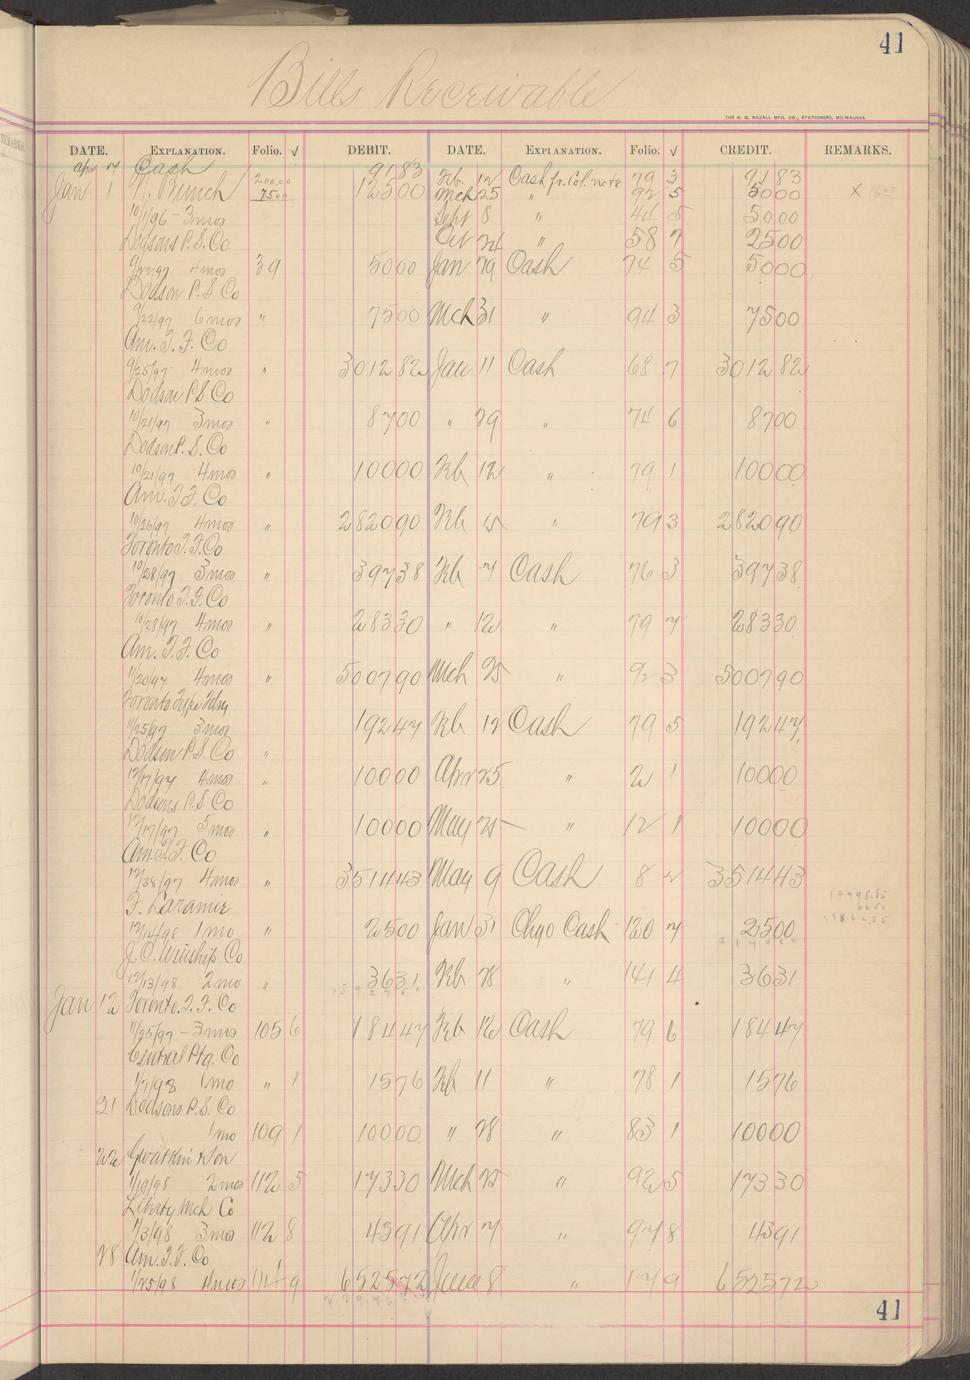 41
Bills Receivable
THE H. G. RAZALL MFG. CO., STATIONERS, MILWAUKEE.
DATE. EXPLANATION. Folio. √ DEBIT. DATE. EXPLANATION. Folio. √ CREDIT. REMARKS.
Apr 7 Cash 91 83 Feb 12 Cash fr. Col. note 79 3 91 83
Jan 1 Bunch 200.00 125 00 Mch 25 " 92 5 50 00 X
7500
10/1/96 - 3 mos Sept 8 " 44 5 50 00
Dodsons P. S. Co. Oct 24 " 58 7 25 00
9/22/97 4 mos 39 50 00 Jan 29 Cash 74 5 50 00
Dodson P. S. Co
9/22/97 6 mos " 75 00 Mch 31 " 94 3 75 00
Am. T. F. Co
9/25/97 4 mos " 3012 82 Jan 11 Cash 68 7 3012 82
Dodson P S Co
10/21/97 3 mos " 87 00 " 29 " 74 6 87 00
Dodson P. S. Co
10/21/97 4 mos " 100 00 Feb 12 " 79 1 100 00
Am. T. F. Co
10/26/97 4 mos " 2820 90 Feb " 79 3 2820 90
Toronto T. F. Co
10/28/97 3 mos " 397 38 Feb 7 Cash 76 3 397 38
Toronto T. F. Co
10/28/97 4 mos " 283 30 " 12 " 79 7 283 30
Am. T. F. Co
11/20/97 4 mos " 5007 90 Mch 25 " 92 3 5007 90
Toronto Type Fdry
11/25/97 3 mos 192 47 Feb 12 Cash 79 5 192 47
Dodson P. S. Co "
12/17/97 4 mos " 100 00 Apr 25 " 2 1 100 00
Dodsons P. S. Co
12/17/97 5 mos " 100 00 May 25 " 12 1 100 00
Am. T. F. Co
12/28/97 4 mos " 3514 43 May 9 Cash 8 2 3514 43
F. Laramie
1 mo " 25 00 Jan 31 Chgo Cash 120 7 25 00
J. C. Winship Co
12/13/98 2 mo " 36 31 Feb 28 " 141 4 36 31
Jan 12 Toronto. T. F. Co
11/25/97 - 3 mos 105 6 184 47 Feb 12 Cash 79 6 184 47
Central Ptg. Co
1/7/98 1 mo " 1 15 76 Feb 11 " 78 1 15 76
21 Dodsons P. S. Co
1 mo 109 1 100 00 " 28 " 83 1 100 00
22 Gwatkin & Son
1/19/98 2 mos 112 5 173 30 Mch 25 " 92 5 173 30
Liberty Mch Co
1/3/98 3 mos 112 8 43 91 Apr 7 " 97 8 43 91
28 Am. T. F. Co
1/25/98 4 mos 114 9 6525 72 June 8 " 17 9 6525 72
41